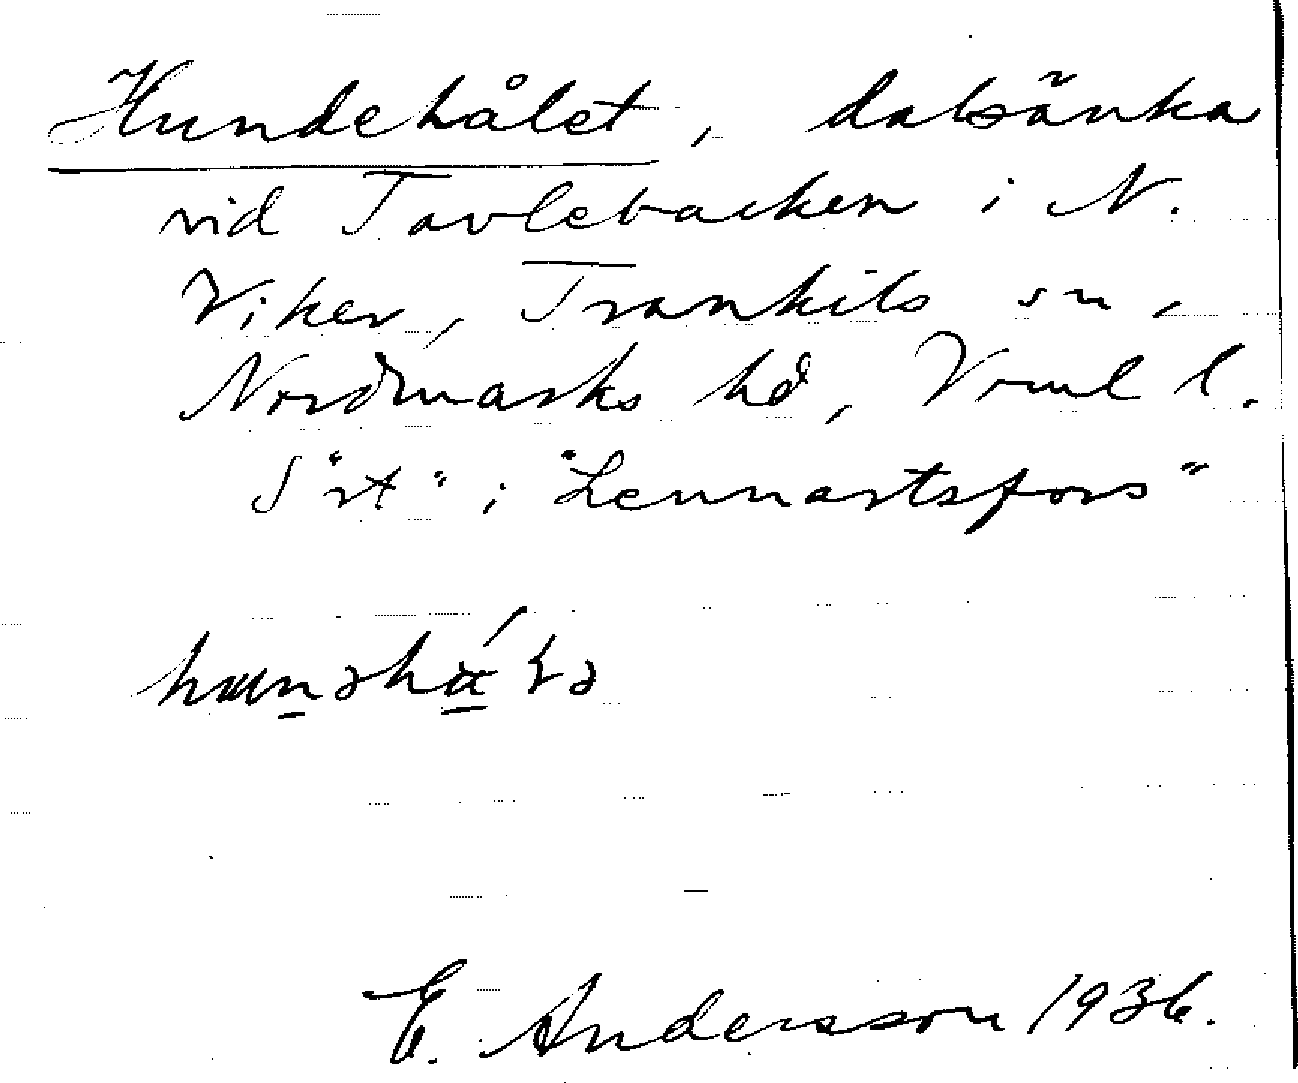 Hundehålet, dalsänka
vid Tavlebacken i N.
Viker, Trankils sn,
Nordmarks hd, Vrml l.
S "rt" i "Lennartsfors"
E. Andersson 1936.